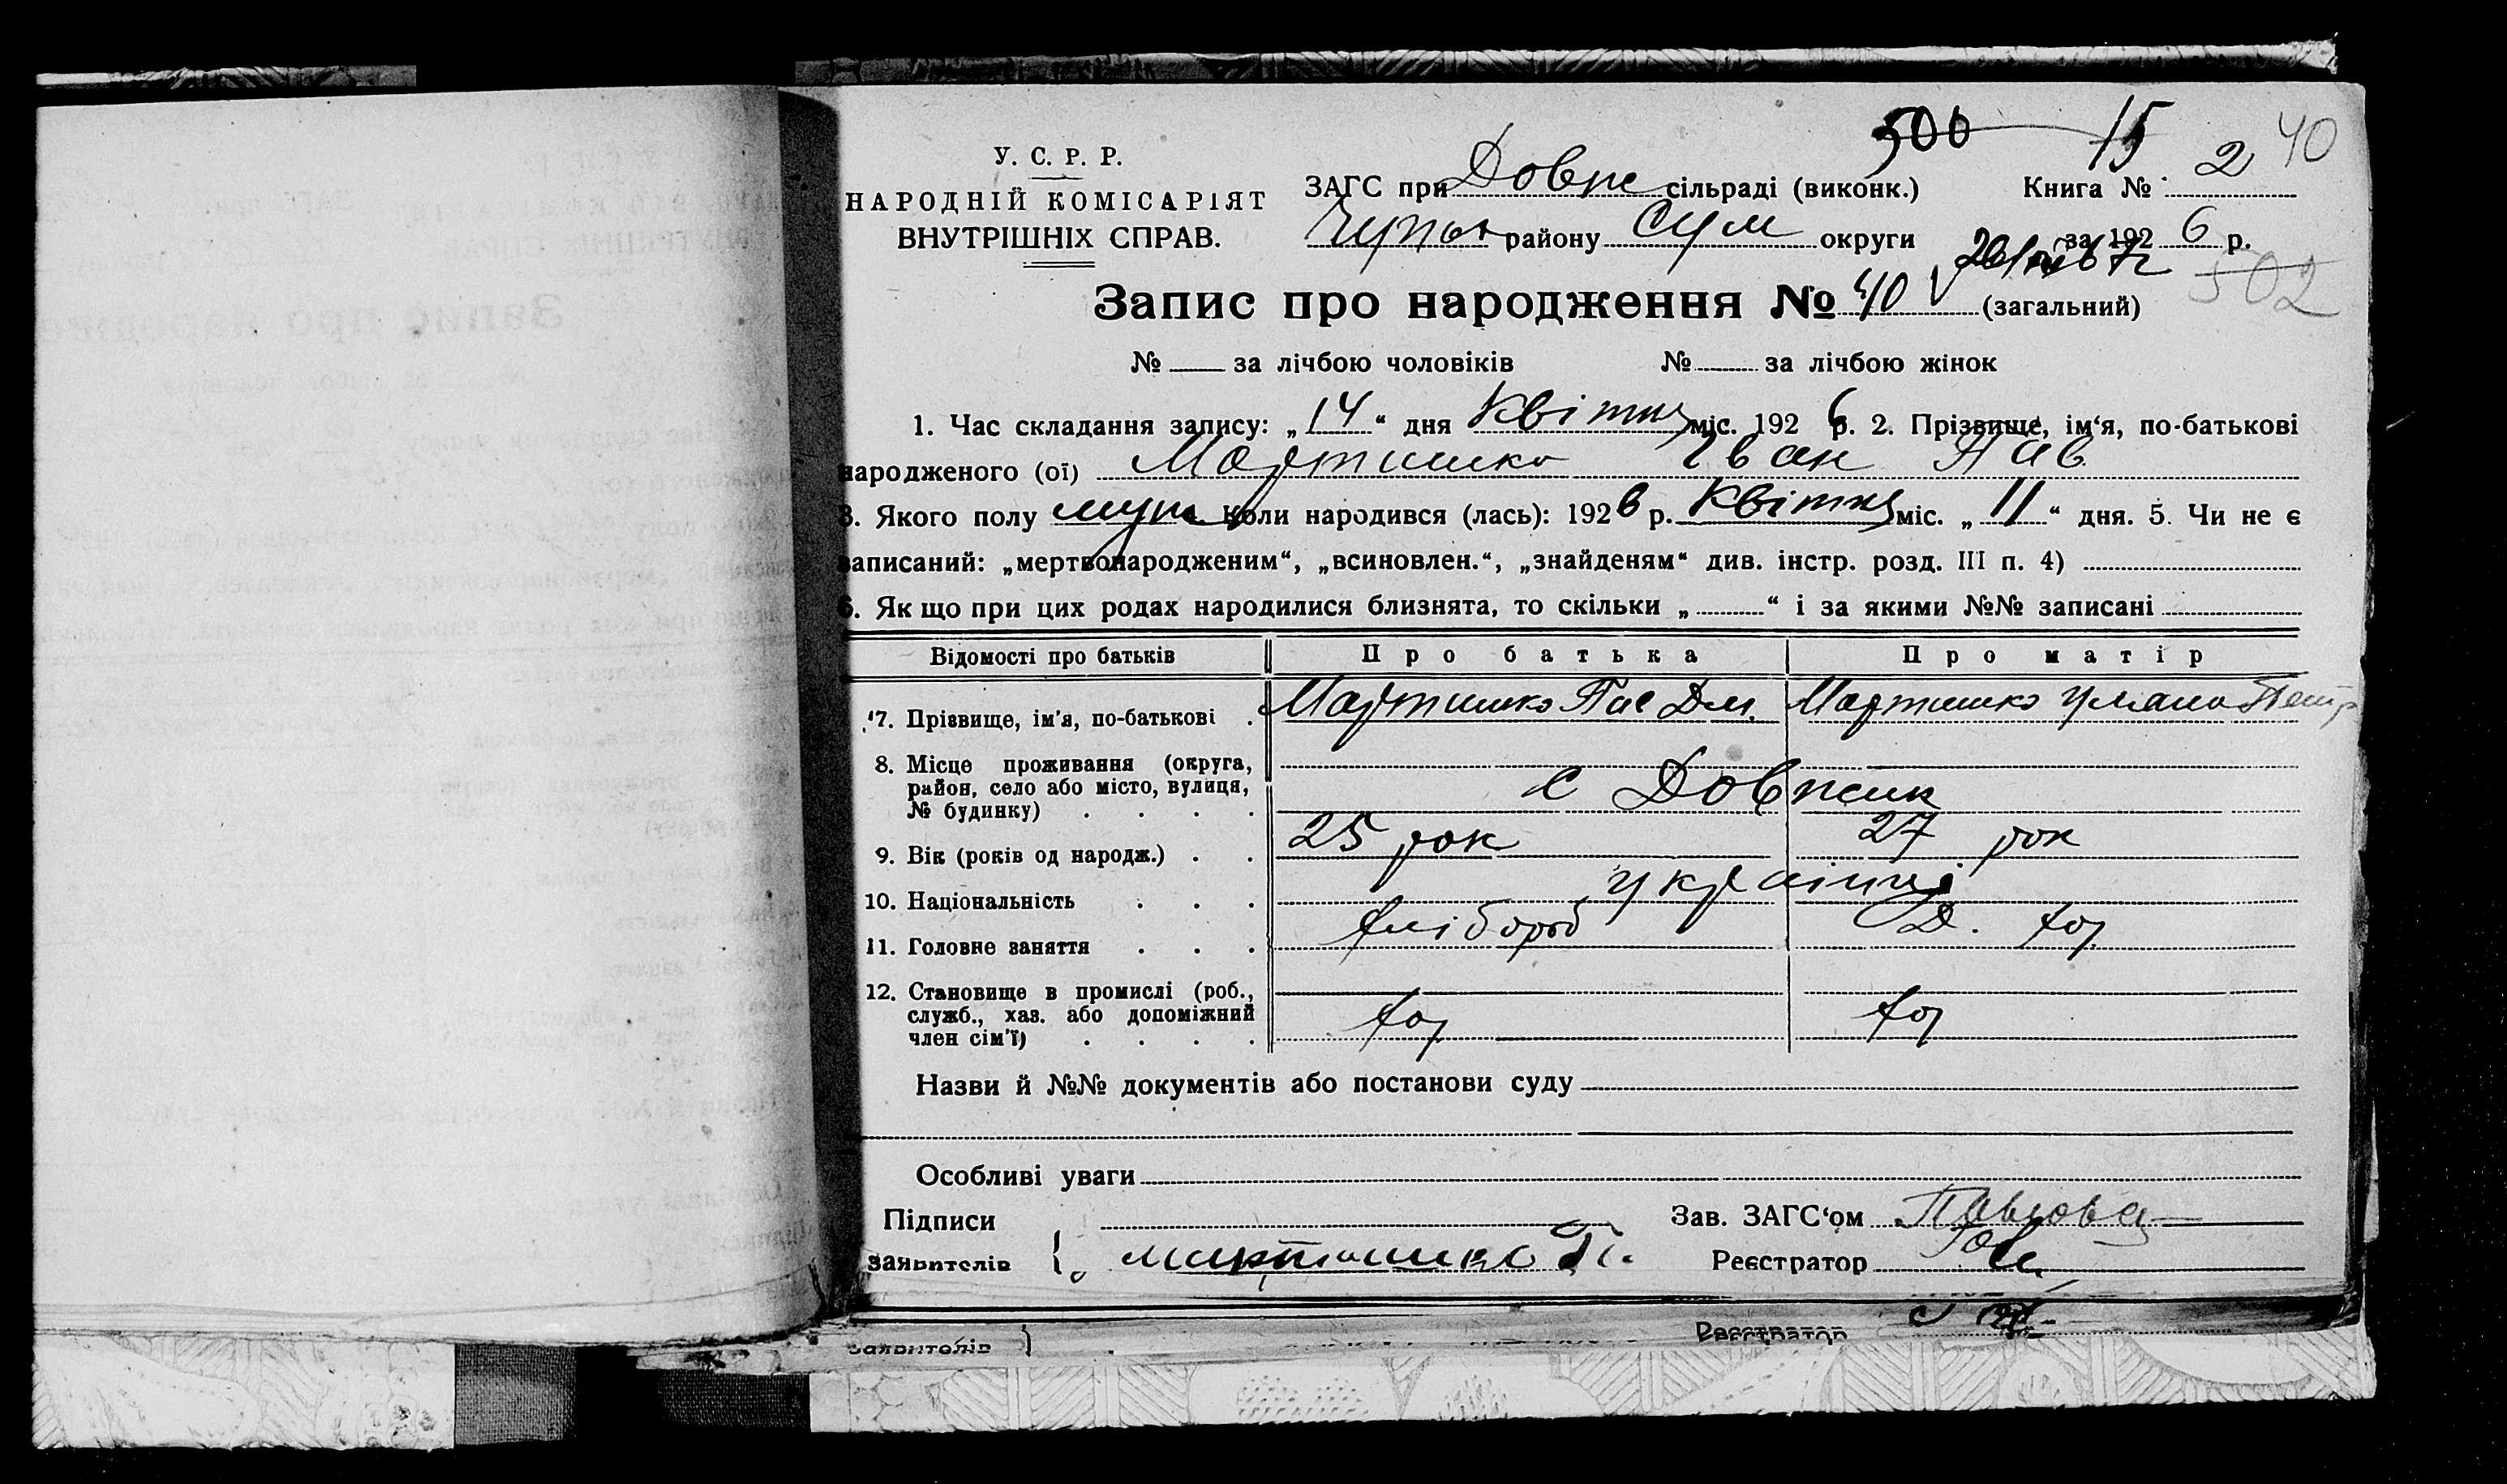 500 15 40
У. С. Р. Р.
НАРОДНІЙ КОМІСАРІЯТ
ВНУТРІШНІХ СПРАВ.
ЗАГС при Довж сільраді (виконк.) Книга № 2
району Сум округи за 1926 р.
502
Запис про народження № 40 (загальний)
№ за лічбою чоловіків № за лічбою жінок
1. Час складання запису: „14“ дня Квітня міс. 1926 р. 2. Прізвище, ім‘я, по-батькові
народженого (ої) Мартишко Іван Пав
3. Якого полу муж. Коли народився (лась): 1926 р. Квітня міс. „11“ дня. 5. Чи не є
записаний: „мертвонародженим“, „всиновлен.“, „знайденям“ див. інстр. розд. III п. 4)
6. Як що при цих родах народилися близнята, то скільки „ “ і за якими №№ записані
Відомості про батьків Про батька Про матір
7. Прізвище, ім'я, по-батькові Мартишко Пав Дм. Мартишко Уляна Петр
8. Місце проживання (округа,
район, село або місто, вулиця,
№ будинку) с Довжик
9. Вік (років од народж.) 25 рок 27 рок
10. Національність українці
11. Головне заняття хлібороб Д. хоз
12. Становище в промислі (роб.,
служб., хаз. або допоміжний
член сім'ї) хоз хоз
Назви й №№ документів або постанови суду
Особливі уваги
Підписи Зав. ЗАГС‘ом
заявителів Мартишко П. Реєстратор
заявителів Реєстратор